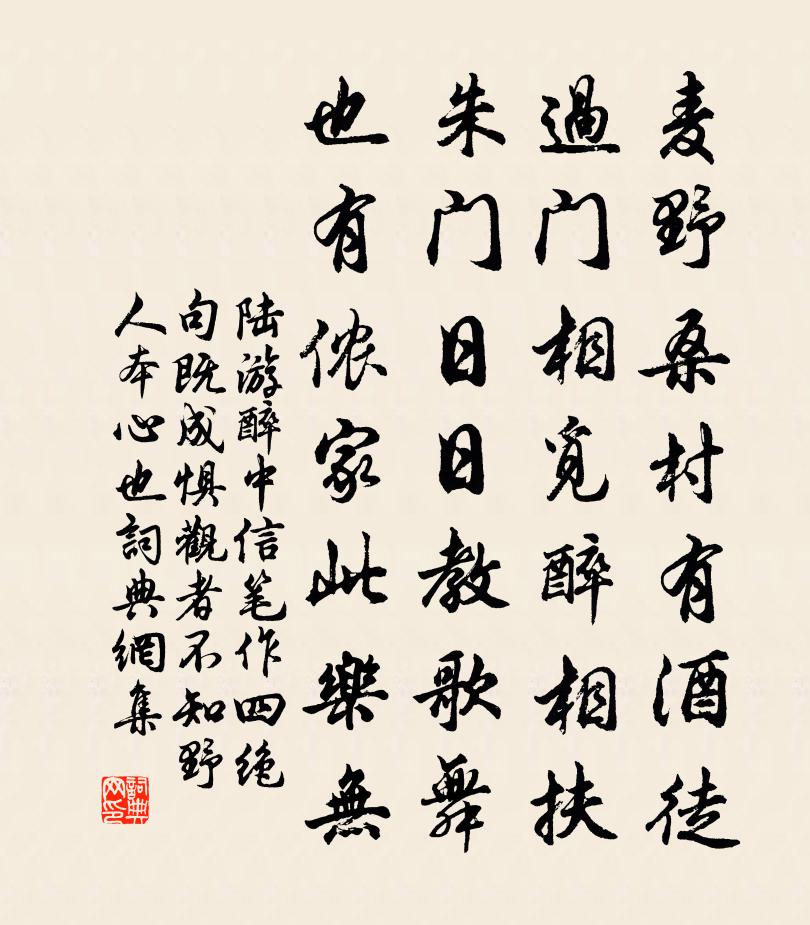 麦野桑村有酒徒
過门相覓醉相扶
朱门日日教歌舞
也有侬家此樂無
陆游醉中信笔作四绝
句既成惧觀者不知野
人本心也詞典網集
詞典
网印